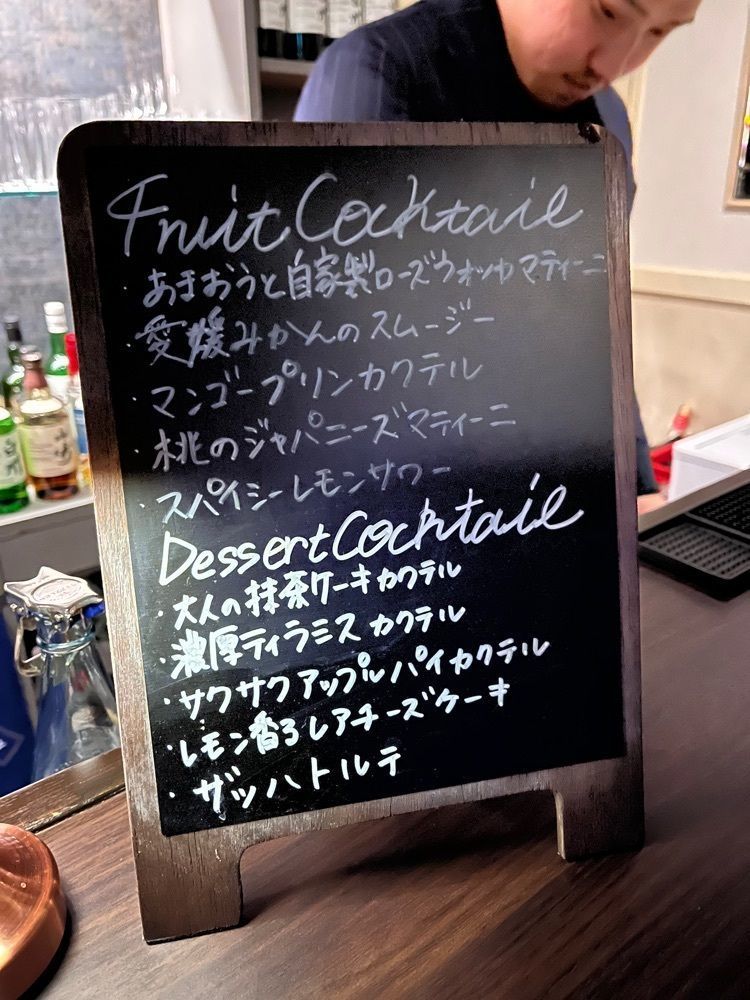 Fruit Cocktail
・あまおうと自家製ローズウォッカマティーニ
・愛媛みかんのスムージー
・マンゴープリンカクテル
・桃のジャパニーズマティーニ
・スパイシーレモンサワー
Dessert Cocktail
・大人の抹茶ケーキカクテル
・濃厚ティラミスカクテル
・サクサクアップルパイカクテル
・レモン香るレアチーズケーキ
・ザッハトルテ